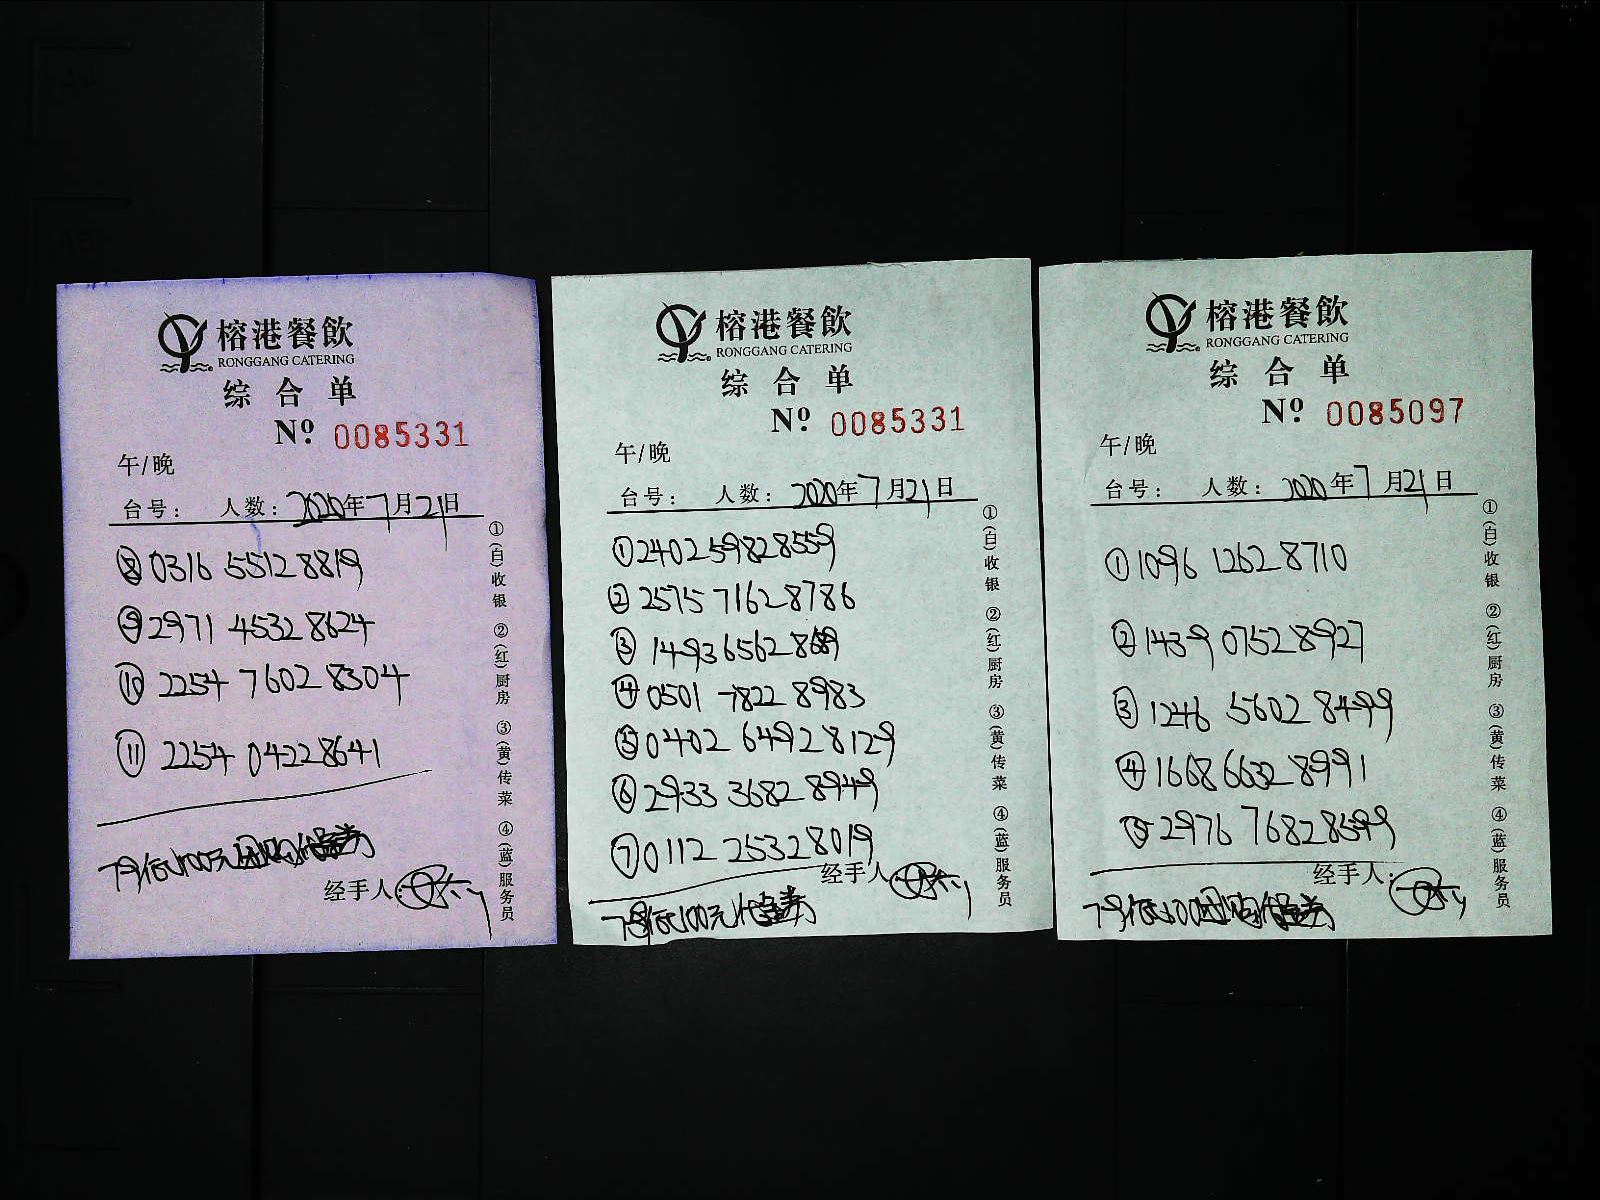 榕港餐飲
RONGGANG CATERING
综合单
Nº 0085331
午/晚
台号: 人数: 2020年7月21日
⑧0316 55128819
⑨2971 45328624
⑩2254 76028304
⑪2254 04228641
经手人:
①(白)收银 ②(红)厨房 ③(黄)传菜 ④(蓝)服务员
榕港餐飲
RONGGANG CATERING
综合单
Nº 0085331
午/晚
台号: 人数: 2020年7月21日
①240259828559
②2575 71628786
③14936562
④0501 78228983
⑤0402 64928129
⑥2933 36828949
⑦0112 25328019
经手人:
100元代金券
①(白)收银 ②(红)厨房 ③(黄)传菜 ④(蓝)服务员
榕港餐飲
RONGGANG CATERING
综合单
Nº 0085097
午/晚
台号: 人数: 2020年7月21日
①1096 12628710
②1439 07528927
③1246 56028499
④1668 66328991
⑤2976 76828599
经手人:
①(白)收银 ②(红)厨房 ③(黄)传菜 ④(蓝)服务员